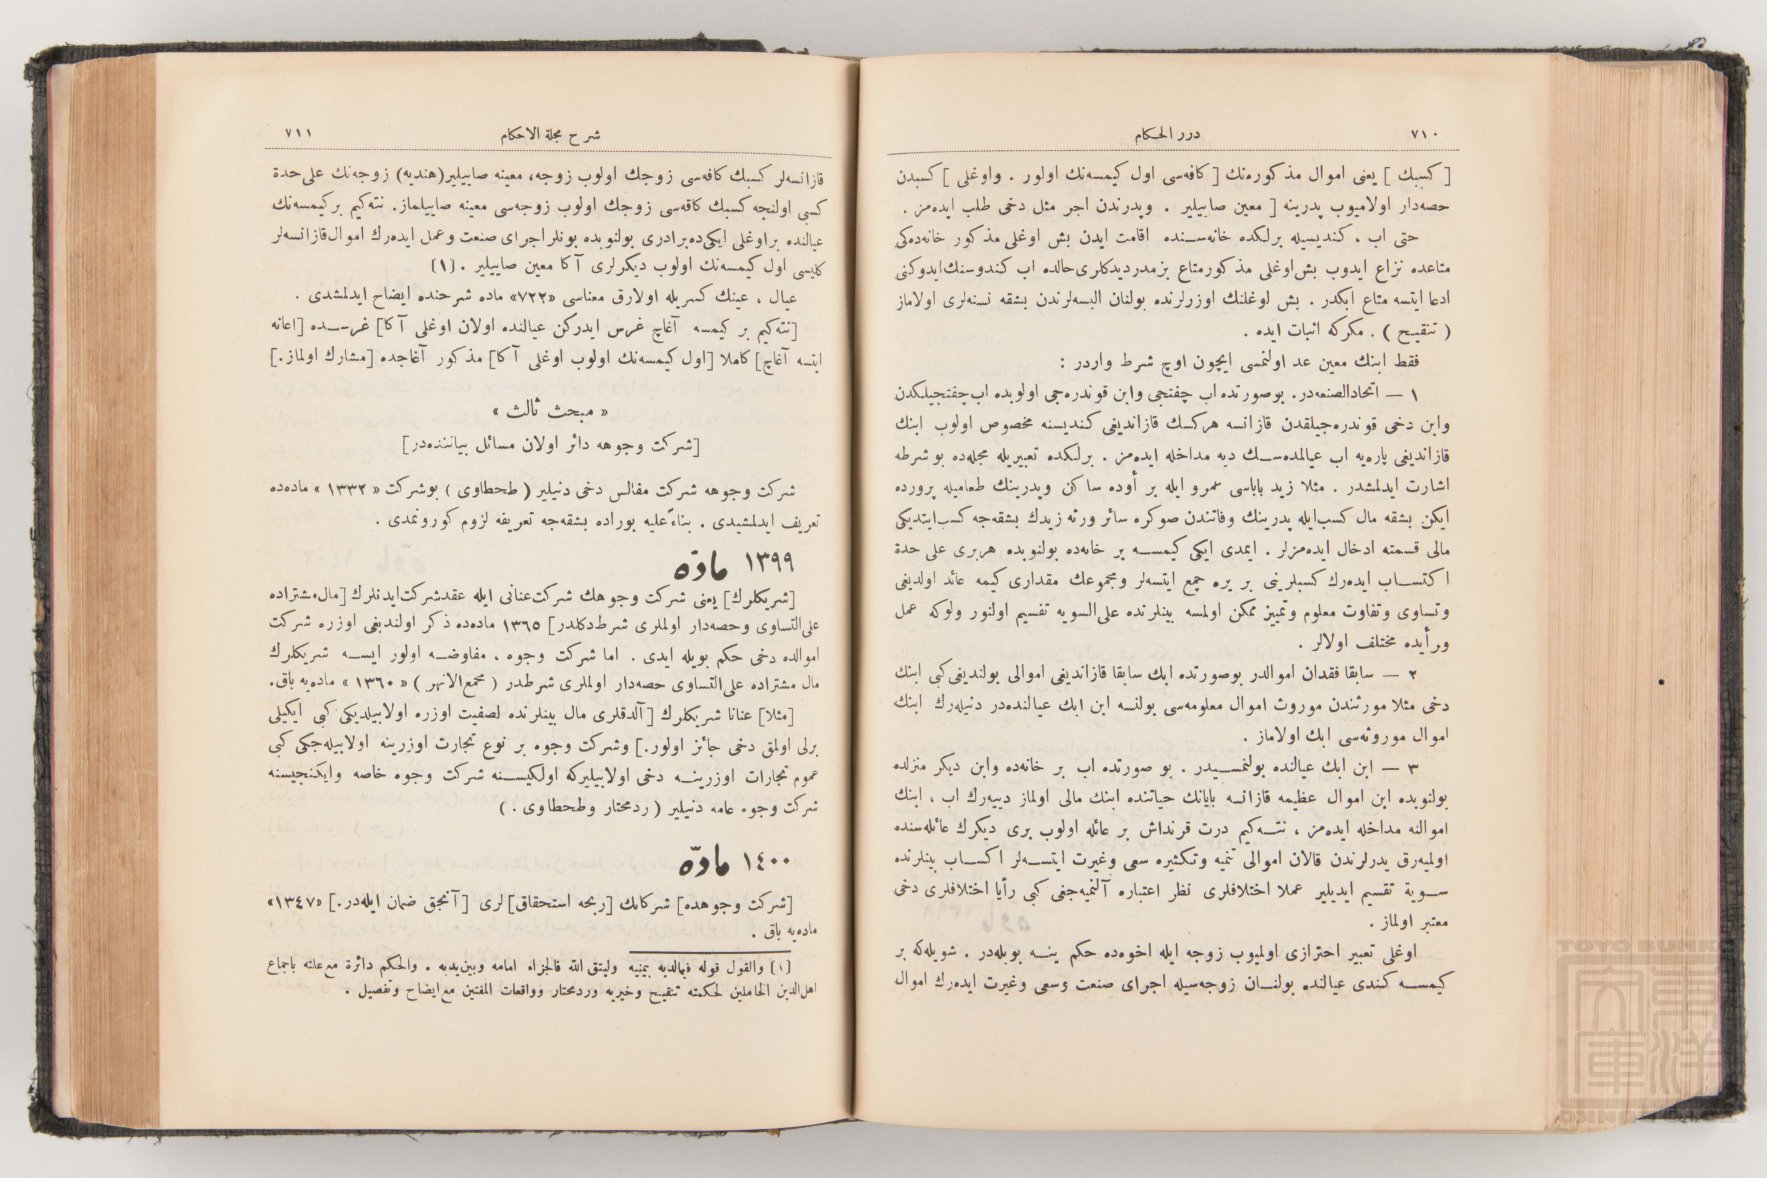 ٧١٠
درر الحكام
[ كسبك ] يعنى اموال مذكوره‌نك [ كافه‌سى اول كيمسه‌نك اولور . واوغلى ] كسبدن
حصه‌دار اولاميوب پدرينه [ معين صاييلير . وپدرندن اجر مثل دخى طلب ايده‌مز .
حتى اب ، كنديسيله برلكده خانه‌سنده اقامت ايدن بش اوغلى مذكور خانه‌ده‌كى
متاعده نزاع ايدوب بش اوغلى مذكور متاع بزمدر ديدكلرى حالده اب كندوسنك ايدوكنى
ادعا ايتسه متاع ابكدر . بش اوغلنك اوزرلرنده بولنان البسه‌لرندن بشقه نسنه‌لرى اولاماز
( تنقيح ) . مكركه اثبات ايده .
فقط ابنك معين عد اولنمسى ايچون اوچ شرط واردر :
١ — اتحاد الصنعه‌در. بو صورتده اب چفتجى وابن قوندره‌جى اولوبده اب چفتجيلكدن
وابن دخى قوندره‌جيلقدن قازانسه هركسك قازانديغى كنديسنه مخصوص اولوب ابنك
قازانديغى پاره‌يه اب عيالمده‌سك ديه مداخله ايده‌مز . برلكده تعبيريله مجله‌ده بو شرطه
اشارت ايدلمشدر . مثلا زيد باباسى عمرو ايله بر أوده ساكن وپدرينك طعاميله پرورده
ايكن بشقه مال كسب ايله پدرينك وفاتندن صوكره سائر ورثه زيدك بشقه‌جه كسب ايتديكى
مالى قسمته ادخال ايده‌مزلر . ايمدى ايكى كيمسه بر خانه‌ده بولنوبده هربرى على حدة
اكتساب ايده‌رك كسبلرينى بر يره جمع ايتسه‌لر ومجموعك مقدارى كيمه عائد اولديغى
وتساوى وتفاوت معلوم وتمييز ممكن اولمسه بينلرنده على السويه تقسيم اولنور ولوكه عمل
ورأيده مختلف اولالر .
٢ — سابقا فقدان اموالدر بوصورتده ابك سابقا قازانديغى اموالى بولنديغى كبى ابنك
دخى مثلا مورثندن موروث اموال معلومه‌سى بولنسه ابن ابك عيالنده‌در دنيله‌رك ابنك
اموال موروثه‌سى ابك اولاماز .
٣ — ابن ابك عيالنده بولنمسيدر . بو صورتده اب بر خانه‌ده وابن ديكر منزلده
بولنوبده ابن اموال عظيمه قازانسه بابانك حياتنده ابنك مالى اولماز دييه‌رك اب ، ابنك
اموالنه مداخله ايده‌مز ، نته‌كيم درت قرنداش بر عائله اولوب برى ديكرك عائله‌سنده
اولميه‌رق پدرلرندن قالان اموالى تنميه وتكثيره سعى وغيرت ايتسه‌لر اكساب بينلرنده
سوية تقسيم ايديلير عملا اختلافلرى نظر اعتباره آلنميه‌جغى كبى رأيا اختلافلرى دخى
معتبر اولماز .
اوغلى تعبير احترازى اولميوب زوجه ايله اخوه‌ده حكم ينه بويله‌در . شويله‌كه بر
كيمسه كندى عيالنده بولنان زوجه‌سيله اجراى صنعت وسعى وغيرت ايده‌رك اموال
شرح مجلة الاحكام
٧١١
قازانسه‌لر كسبك كافه‌سى زوجك اولوب زوجه، معينه صاييلير (هنديه) زوجه‌نك على حدة
كسبى اولنجه كسبك كافه‌سى زوجك اولوب زوجه‌سى معينه صاييلماز. نته‌كيم بر كيمسه‌نك
عيالنده بر اوغلى ايكى‌ده برادرى بولنوبده بونلر اجراى صنعت وعمل ايده‌رك اموال قازانسه‌لر
كليسى اول كيمسه‌نك اولوب ديكرلرى آكا معين صاييلير . (١)
عيال ، عينك كسريله اولارق معناسى «٧٢٢» ماده شرحنده ايضاح ايدلمشدى .
[نته‌كيم بر كيمسه آغاچ غرس ايدركن عيالنده اولان اوغلى آكا] غرسده [اعانه
ايتسه آغاچ] كاملا [اول كيمسه‌نك اولوب اوغلى آكا] مذكور آغاجده [مشارك اولماز.]
« مبحث ثالث »
[شركت وجوهه دائر اولان مسائل بياننده‌در]
شركت وجوهه شركت مفاليس دخى دنيلير ( طحطاوى ) بوشركت « ١٣٣٢ » ماده‌ده
تعريف ايدلمشيدى . بناءً عليه بوراده بشقه‌جه تعريفه لزوم كورونمدى .
١٣٩٩ مادّه
[شريكلرك] يعنى شركت وجوهك شركت عنانى ايله عقد شركت ايدنلرك [مال مشتراده
على التساوى وحصه‌دار اولملرى شرط دكلدر] ١٣٦٥ ماده‌ده ذكر اولنديغى اوزره شركت
اموالده دخى حكم بويله ايدى . اما شركت وجوه ، مفاوضه اولور ايسه شريكلرك
مال مشتراده على التساوى حصه‌دار اولملرى شرطدر ( مجمع الانهر ) « ١٣٦٠ » ماده‌يه باق.
[مثلا] عنانا شريكلرك [آلدقلرى مال بينلرنده نصفيت اوزره اولابيلديكى كبى ايكيلى
برلى اولمق دخى جائز اولور.] وشركت وجوه بر نوع تجارت اوزرينه اولابيله‌جكى كبى
عموم تجارات اوزرينه دخى اولابيليركه اولكيسنه شركت وجوه خاصه وايكنجيسنه
شركت وجوه عامه دنيلير ( ردمختار وطحطاوى . )
١٤٠٠ مادّه
[شركت وجوهده] شركانك [ربحه استحقاق] لرى [آنجق ضمان ايله‌در.] «١٣٤٧»
ماده‌يه باق .
(١) والقول قوله فيما لديه بيمينه وليتق الله فالجزاء امامه وبين يديه . والحكم دائرة مع علته باجماع
اهل الدين الحاملين لحكمته تنقيح وخيريه وردمختار وواقعات المفتين مع ايضاح وتفصيل .
TOYO BUNKO
東洋文庫
TOYO BUNKO